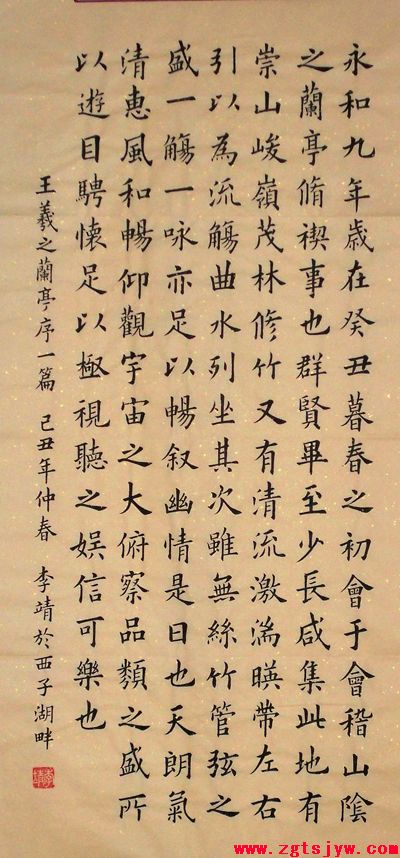 永和九年歲在癸丑暮春之初會于會稽山陰
之蘭亭脩禊事也群賢畢至少長咸集此地有
崇山峻嶺茂林修竹又有清流激湍暎帶左右
引以為流觴曲水列坐其次雖無絲竹管弦之
盛一觴一咏亦足以暢叙幽情是日也天朗氣
清惠風和暢仰觀宇宙之大俯察品類之盛所
以遊目騁懷足以極視聽之娛信可樂也
王羲之蘭亭序一篇 己丑年仲春 李靖於西子湖畔
www.zgtsjyw.com